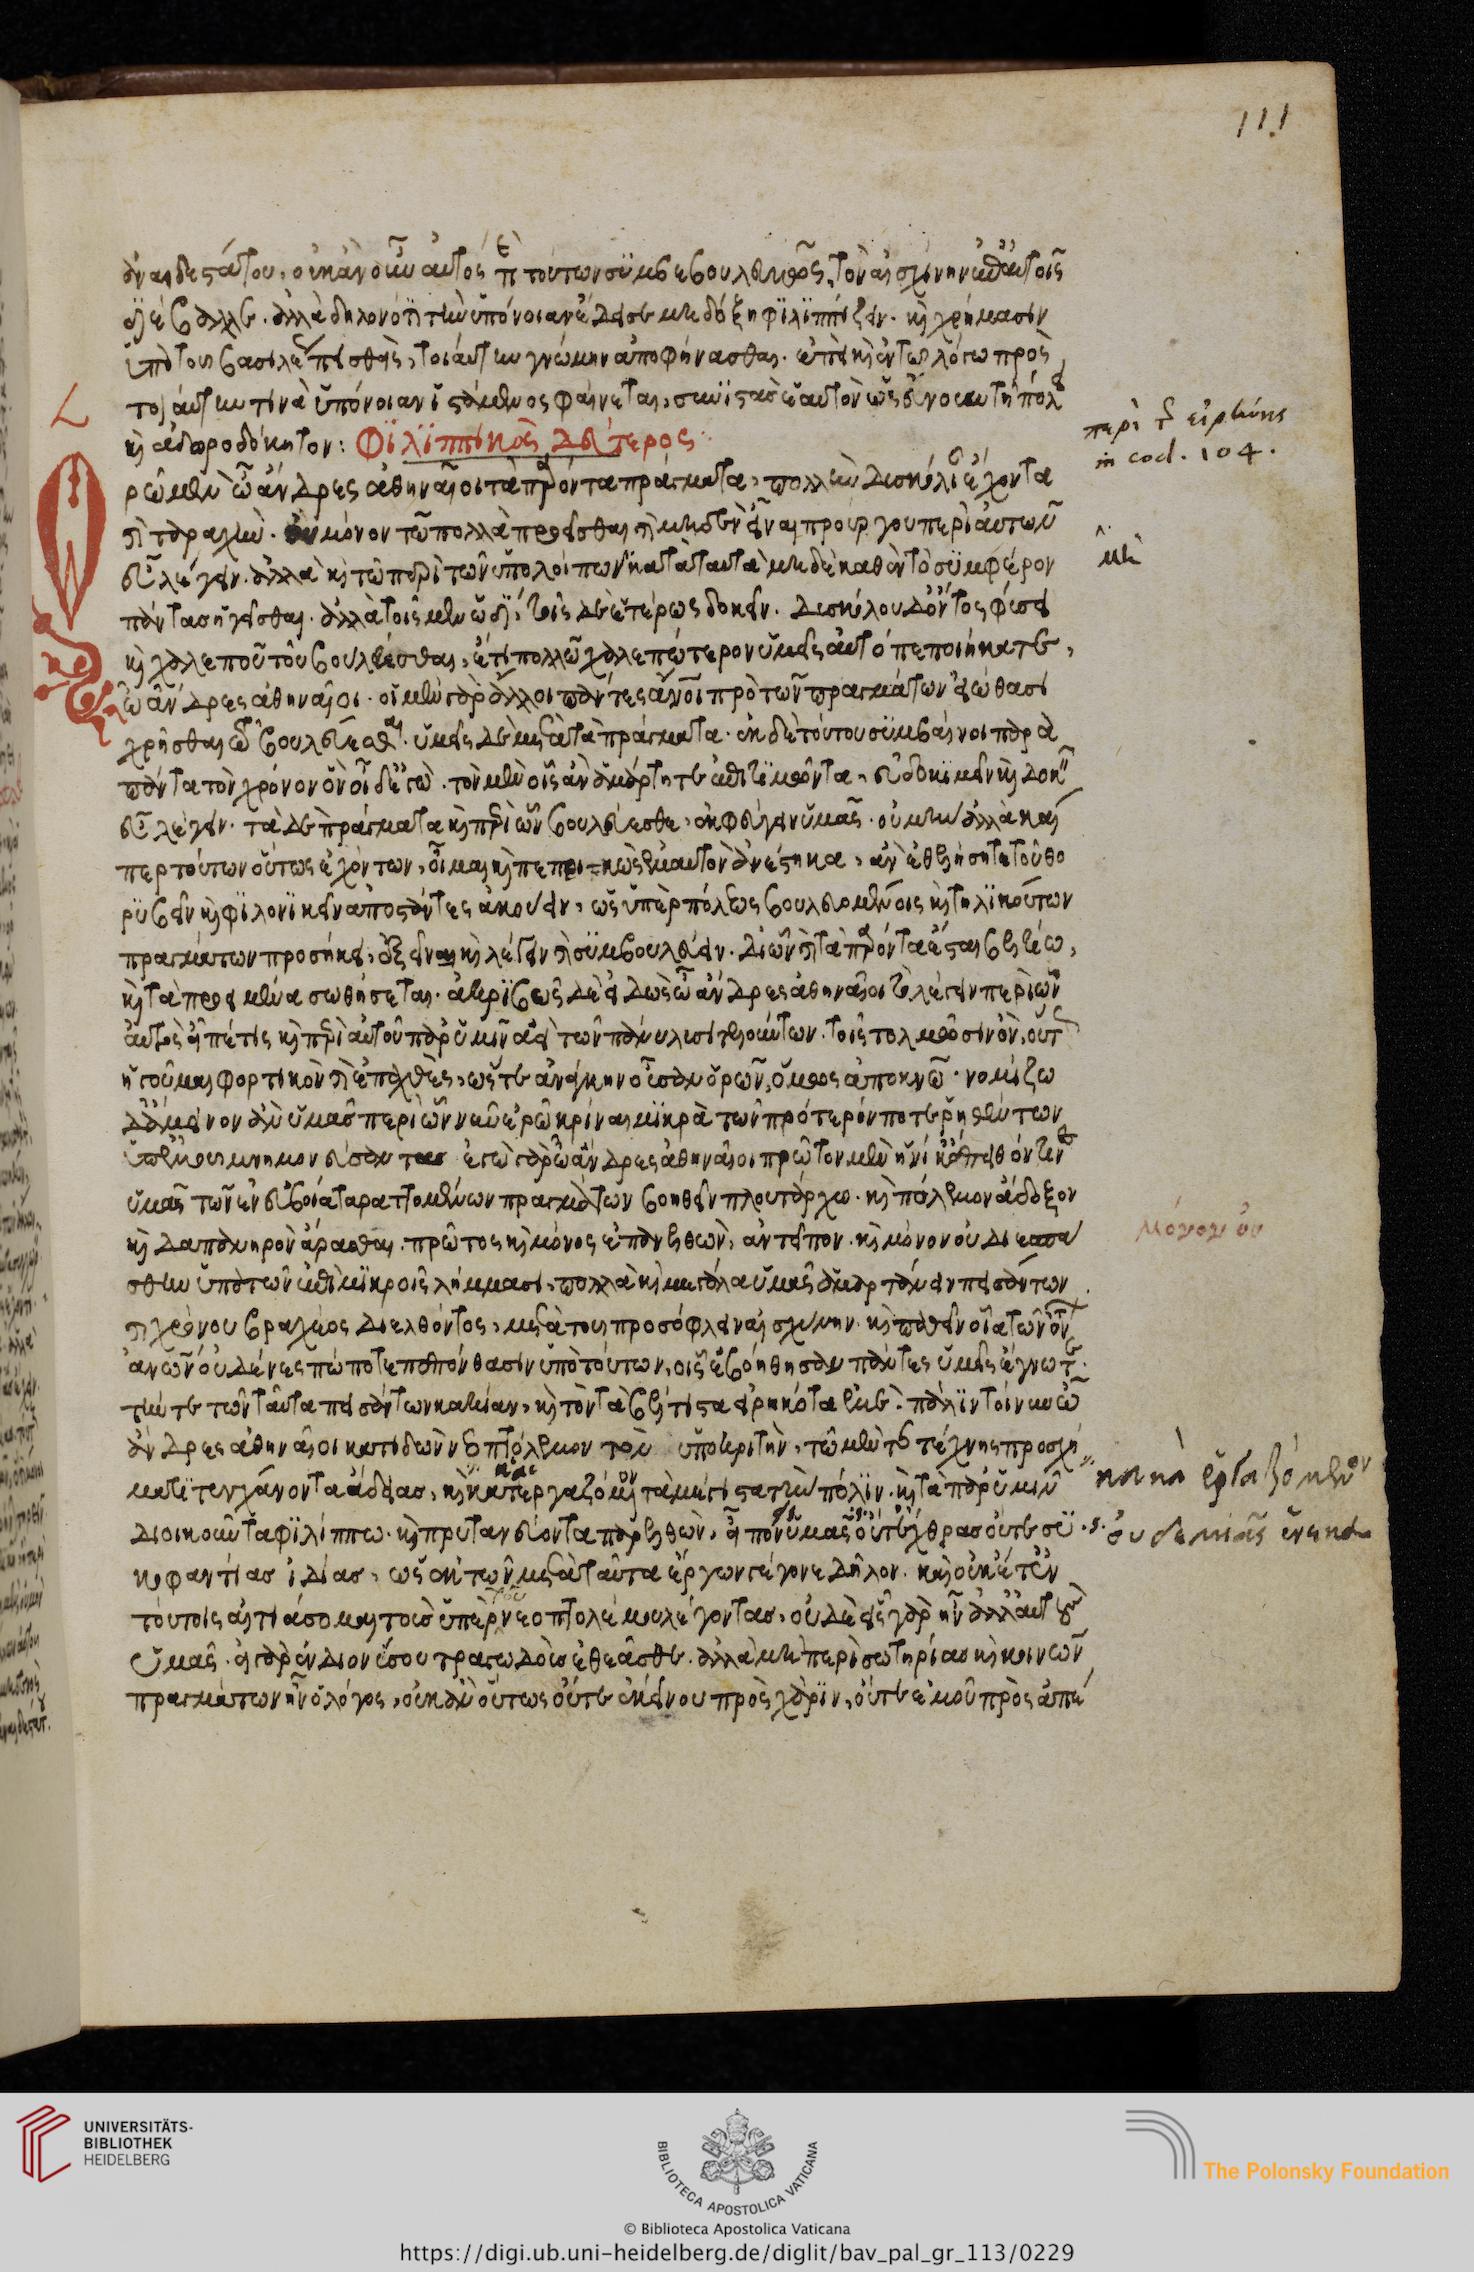 111
περὶ τῆς εἰρήνης
in cod. 104.
καὶ ἀδωροδόκητον: Φιλιππικὸς δεύτερος:
ρῶ μὲν ὦ ἄνδρες ἀθηναῖοι τὰ παρόντα πράγματα, πολλὴν δυσκολίαν ἔχοντα
καὶ ταραχὴν. οὐ μόνον τῶ πολλὰ προεῖσθαι καὶ μηδὲν εἶναι προὔργου περὶ αὐτῶν
εὖ λέγειν. ἀλλὰ καὶ τῶ περὶ τῶν ὑπολοίπων κατὰ ταυτὰ μηδὲ καθ' ἓν τὸ συμφέρον
πάντας ἡγεῖσθαι. ἀλλὰ τοῖς μὲν ὡδί, τοῖς δὲ ἑτέρως δοκεῖν. δυσκόλου δ' ὄντος φύσει
καὶ χαλεποῦ τοῦ βουλεύεσθαι, ἔτι πολλῶ χαλεπώτερον ὑμεῖς αὐτὸ πεποιήκατε,
ὦ ἄνδρες ἀθηναῖοι. οἱ μὲν γὰρ ἄλλοι πάντες ἄνοι πρὸ τῶν πραγμάτων εἰώθασι
χρῆσθαι τῶ βουλεύεσθαι. ὑμεῖς δὲ μετὰ τὰ πράγματα. ἐκ δὲ τούτου συμβαίνει παρὰ
πάντα τὸν χρόνον ὃν οἶδ' ἐγὼ. τὸν μὲν οἷς ἂν ἁμάρτητε ἐπιτιμῶντα, εὐδοκιμεῖν καὶ δοκεῖν
εὖ λέγειν. τὰ δὲ πράγματα καὶ περὶ ὧν βουλεύεσθε, ἐκφεύγειν ὑμᾶς. οὐ μὴν ἀλλὰ καί
περ τούτων οὕτως ἐχόντων, οἶμαι καὶ πεπεικὼς ἐμαυτὸν ἀνέστηκα, ἂν ἐθελήσητε τοῦ θο
ρυβεῖν καὶ φιλονικεῖν ἀποστάντες ἀκούειν, ὡς ὑπὲρ πόλεως βουλευομένοις καὶ τηλικούτων
πραγμάτων προσήκει, ἕξειν καὶ λέγειν καὶ συμβουλεύειν. δι' ὧν καὶ τὰ παρόντα ἔσται βελτίω,
καὶ τὰ προειμένα σωθήσεται. ἀκριβῶς δὲ εἰδὼς ὦ ἄνδρες ἀθηναῖοι τὸ λέγειν περὶ ὧν
αὐτὸς εἶπέ τις καὶ περὶ αὑτοῦ παρ' ὑμῖν ἀεὶ τῶν πάνυ λυσιτελούντων. τοῖς τολμῶσιν ὂν, οὕτως
ἡγοῦμαι φορτικὸν καὶ ἐπαχθὲς, ὥστε ἀνάγκην οὖσαν ὁρῶν, ὅμως ἀποκνῶ. νομίζω
δ' ἄμεινον ἂν ὑμᾶς περὶ ὧν νῦν ἐρῶ κρῖναι μικρὰ τῶν πρότερόν ποτε ῥηθέντων
ἐγὼ γὰρ ὦ ἄνδρες ἀθηναῖοι πρῶτον μὲν ἡνίκ' ἔπειθόν τινες
ὑμᾶς τῶν ἐν εὐβοία ταραττομένων πραγμάτων βοηθεῖν πλουτάρχω. καὶ πόλεμον ἄδοξον
καὶ δαπανηρὸν ἄρασθαι. πρῶτος καὶ μόνος παρελθὼν, ἀντεῖπον. καὶ μόνον οὐ διεσπά
σθην ὑπὸ τῶν ἐπὶ μικροῖς λήμμασι, πολλὰ καὶ μεγάλα ὑμᾶς ἁμαρτάνειν πεισάντων
καὶ χρόνου βραχέος διελθόντος, μετὰ τοῦ προσόφλειν αἰσχύνην. καὶ παθεῖν οἷα τῶν ὄντων
ἀνῶν οὐδένες πώποτε πεπόνθασιν ὑπὸ τούτων, οἷς ἐβοήθησαν πάντες ὑμεῖς ἔγνωτε.
τήν τε τῶν ταῦτα πεισάντων κακίαν, καὶ τὸν τὰ βέλτιστα εἰρηκότα ἐμὲ. πάλιν τοίνυν ὦ
ἄνδρες ἀθηναῖοι κατιδὼν νεοπτόλεμον τὸν ὑποκριτὴν, τῶ μὲν τῆς τέχνης προσχή
ματι τυγχάνοντα ἀδείας, κακὰ ἐργαζόμενον τὰ μέγιστα τὴν πόλιν. καὶ τὰ παρ' ὑμῖν
διοικοῦντα φιλίππω. καὶ πρυτανεύοντα παρελθὼν, εἶπον εἰς ὑμᾶς οὔτε ἔχθρας οὔτε συ
κοφαντίας ἰδίας, ὡς ἐκ τῶν μετὰ ταῦτα ἔργων γέγονε δῆλον. καὶ οὐκέτ' ἐν
τούτοις αἰτιάσομαι τοὺς ὑπὲρ νεοπτολέμου λέγοντας, οὐδὲ εἷς γὰρ ἦν ἀλλ' αὐτοὺς
ὑμᾶς. εἰ γὰρ ἐν διονύσου τραγωδοὺς ἐθεᾶσθε. ἀλλὰ μὴ περὶ σωτηρίας καὶ κοινῶν
πραγμάτων ἦν ὁ λόγος, οὐκ ἂν οὕτως οὔτε ἐκείνου πρὸς χάριν, οὔτε ἐμοῦ πρὸς ἀπέ
μὴ
μόνον οὐ
κακὰ ἐργαζόμενον
οὐδεμιᾶς ἕνεκα
UNIVERSITÄTS-
BIBLIOTHEK
HEIDELBERG
BIBLIOTECA APOSTOLICA VATICANA
The Polonsky Foundation
© Biblioteca Apostolica Vaticana
https://digi.ub.uni-heidelberg.de/diglit/bav_pal_gr_113/0229